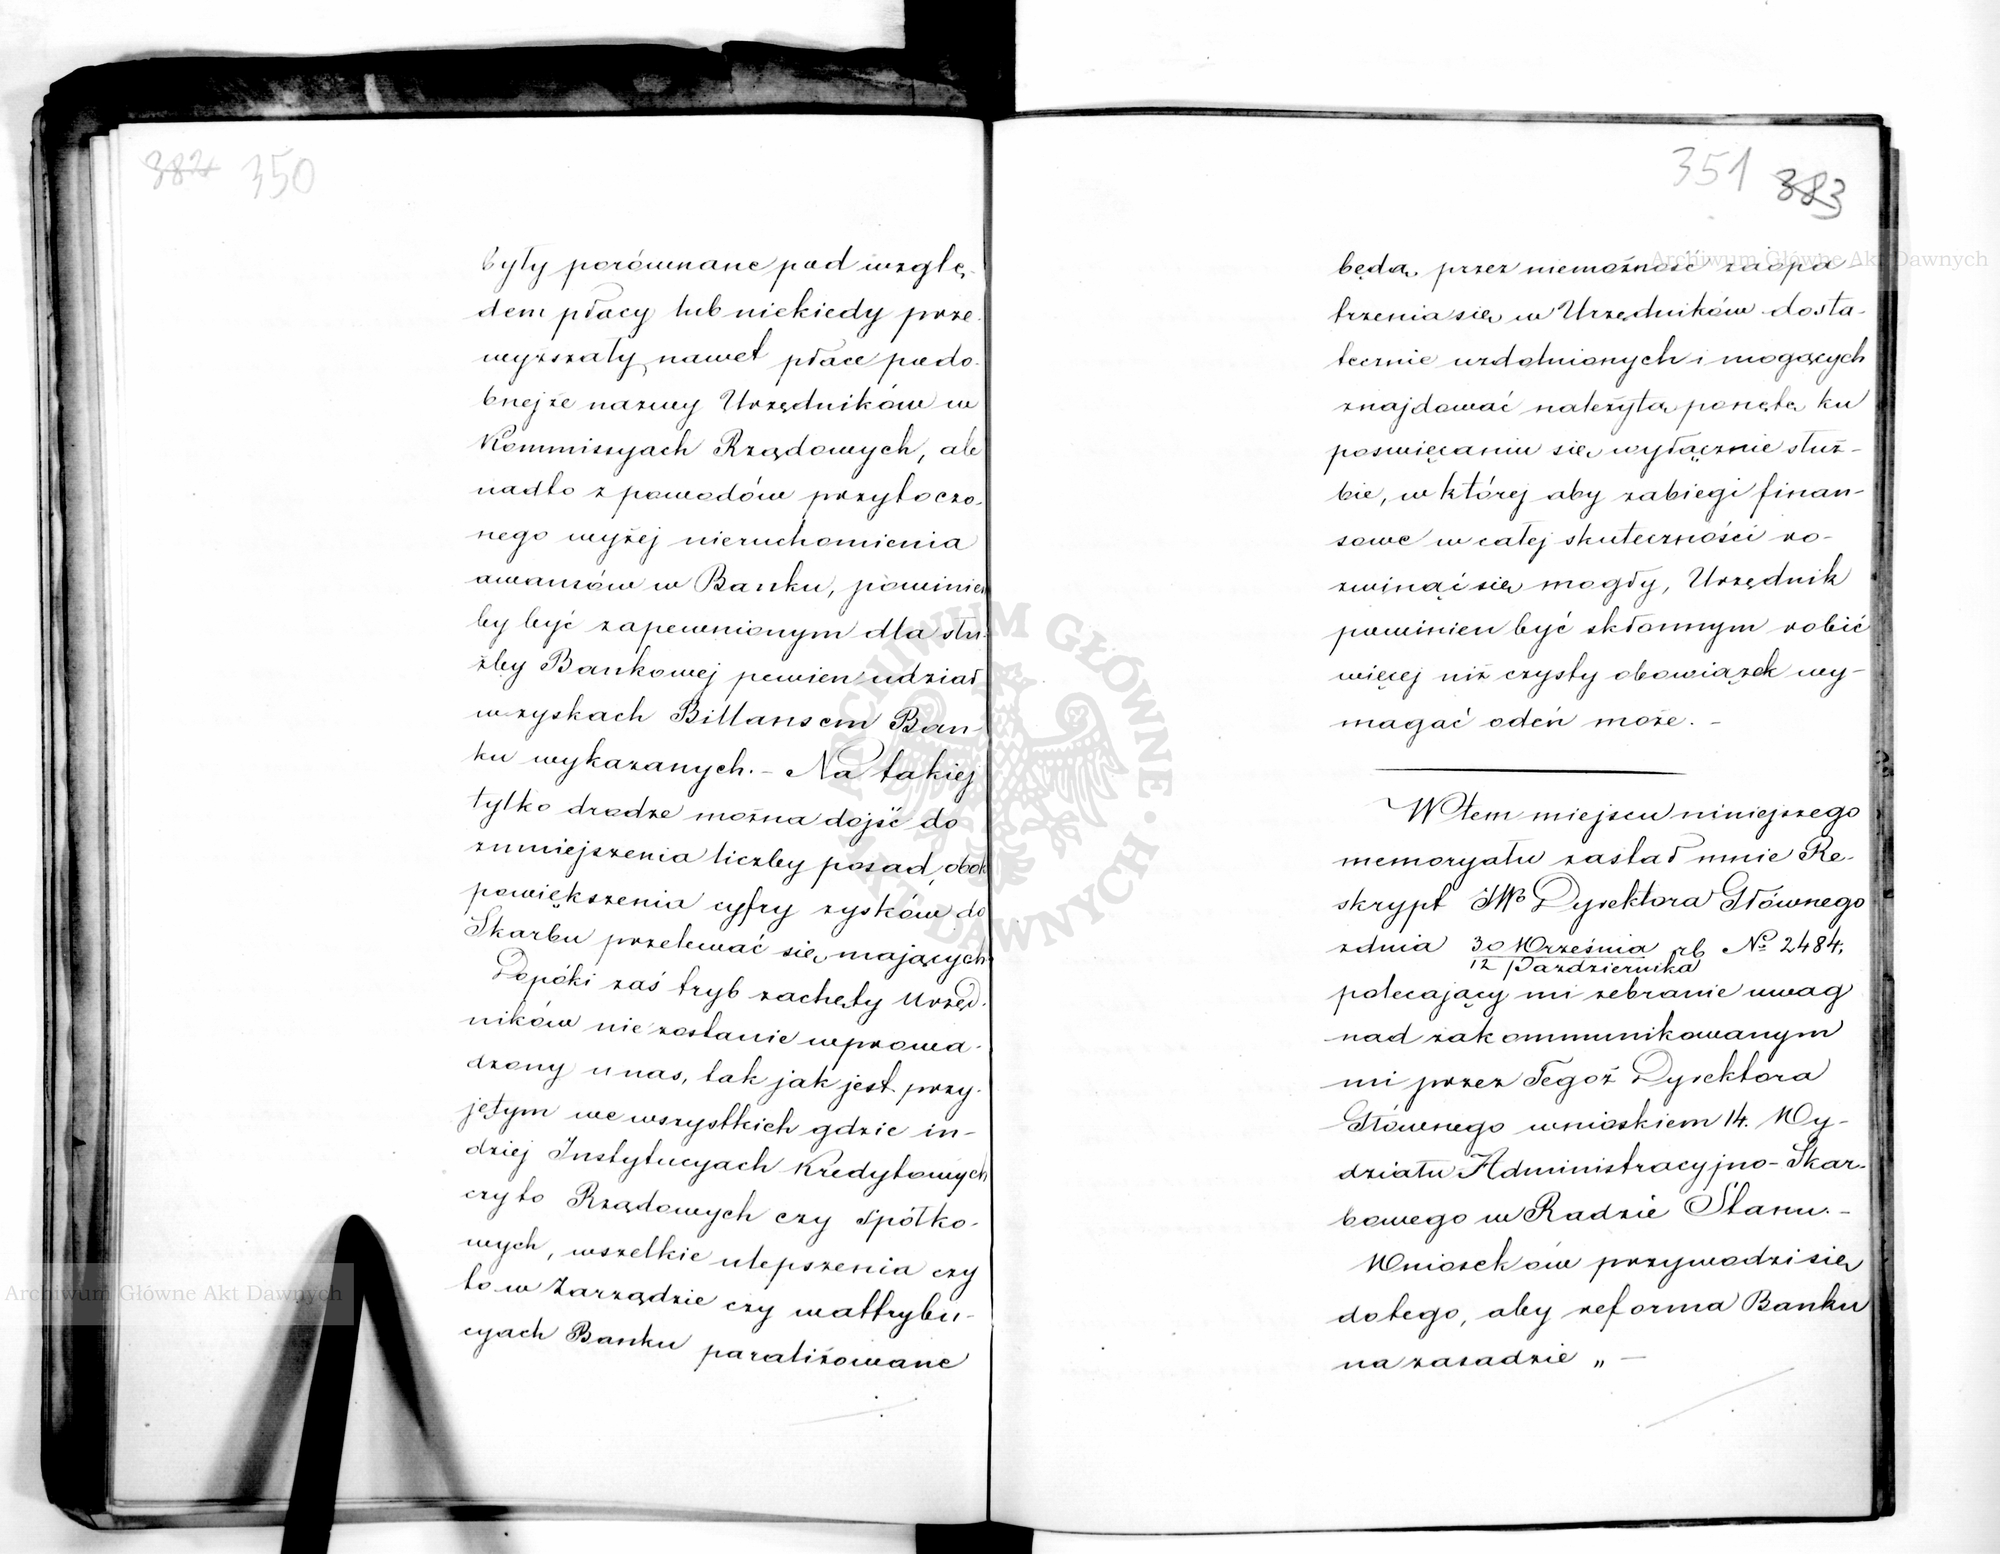 382 350
były porównane pod wzglę-
dem płacy lub niekiedy prze-
wyższały nawet płace podo-
bnejże nazwy Urzędników w
Kommissyach Rządowych, ale
nadto z powodów przytoczo-
nego wyżej nieruchomienia
awansów w Banku, powinien
by być zapewnionym dla słu-
żby Bankowej pewien udział
w zyskach Billansem Ban-
ku wykazanych. – Na takiej
tylko drodze można dojść do
zmniejszenia liczby posad, obok
powiększenia cyfry zysków do
Skarbu przelewać się mających
Dopóki zaś tryb zachęty Urzęd-
ników nie zostanie wprowa-
dzony u nas, tak jak jest przy-
jętym we wszystkich gdzie in-
dziej Instytucyach Kredytowych
czy to Rządowych czy Spółko-
wych, wszelkie ulepszenia czy
to w Zarządzie czy w attrybu-
cyach Banku paraliżowane
351 383
będą przez niemożność zaopa-
trzenia się w Urzędników dosta-
tecznie uzdolnionych i mogących
znajdować należytą ponętę ku
poswięcaniu się wyłącznie służ-
bie, w której aby zabiegi finan-
sowe w całej skuteczności ro-
zwinąć się mogły, Urzędnik
powinien być skłonnym robić
więcej niż czysty obowiązek wy-
magać odeń może. –
W tem miejscu niniejszego
memoryału zastał mnie Re-
skrypt JWo Dyrektora Głównego
z dnia 30 Września / 12 Października rb № 2484,
polecający mi zebranie uwag
nad zakommunikowanym
mi przez Tegoż Dyrektora
Głównego wnioskiem 14. Wy-
działu Administracyjno-Skar-
bowego w Radzie Stanu. –
Wniosek ów przywodzi się
do tego, aby reforma Banku
na zasadzie „ –
Archiwum Główne Akt Dawnych
Archiwum Główne Akt Dawnych
ARCHIWUM GŁÓWNE AKT DAWNYCH